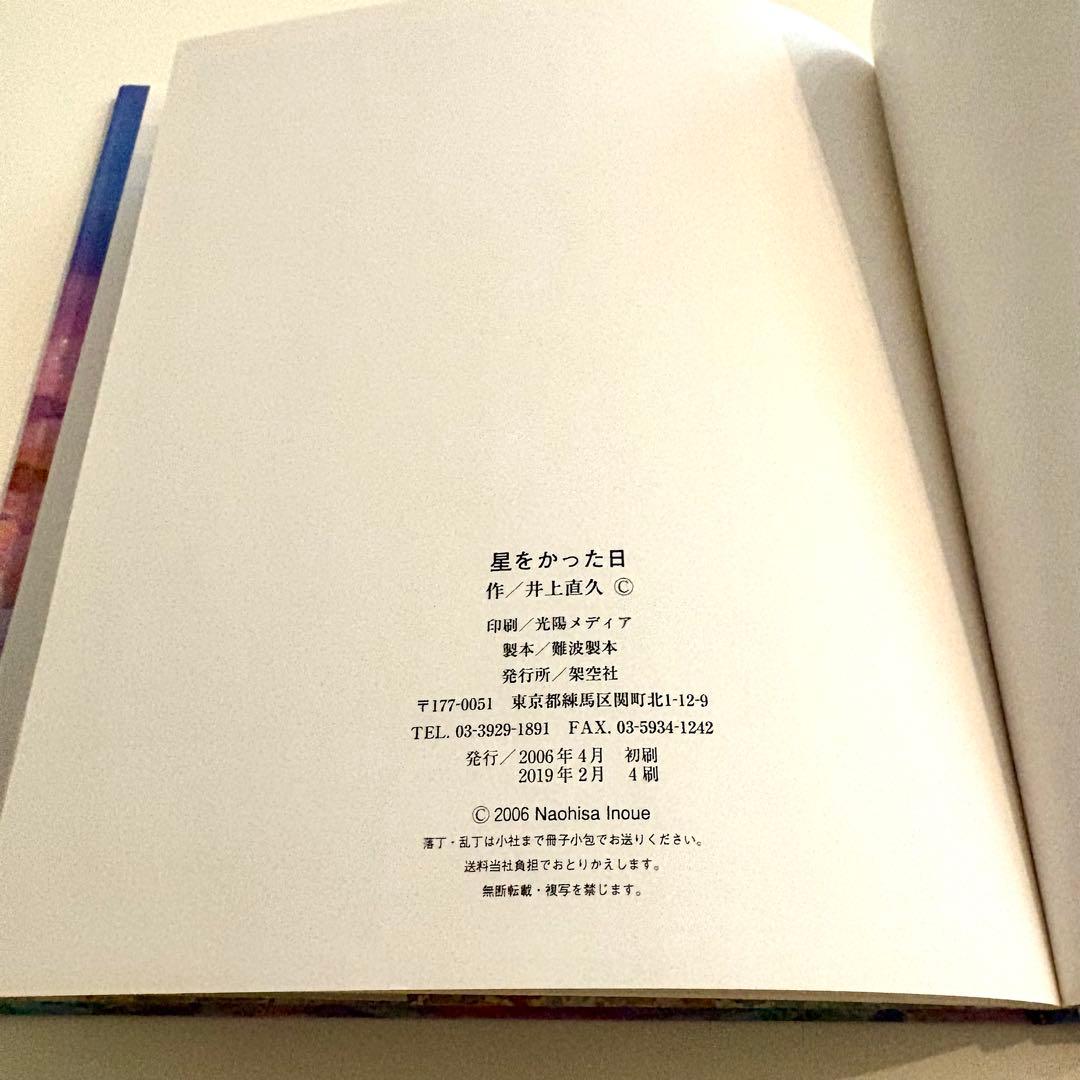 星をかった日
作／井上直久 ©
印刷／光陽メディア
製本／難波製本
発行所／架空社
〒177-0051 東京都練馬区関町北1-12-9
TEL. 03-3929-1891 FAX. 03-5934-1242
発行／2006年4月 初刷
2019年2月 4刷
© 2006 Naohisa Inoue
落丁・乱丁は小社まで冊子小包でお送りください。
送料当社負担でおとりかえします。
無断転載・複写を禁じます。